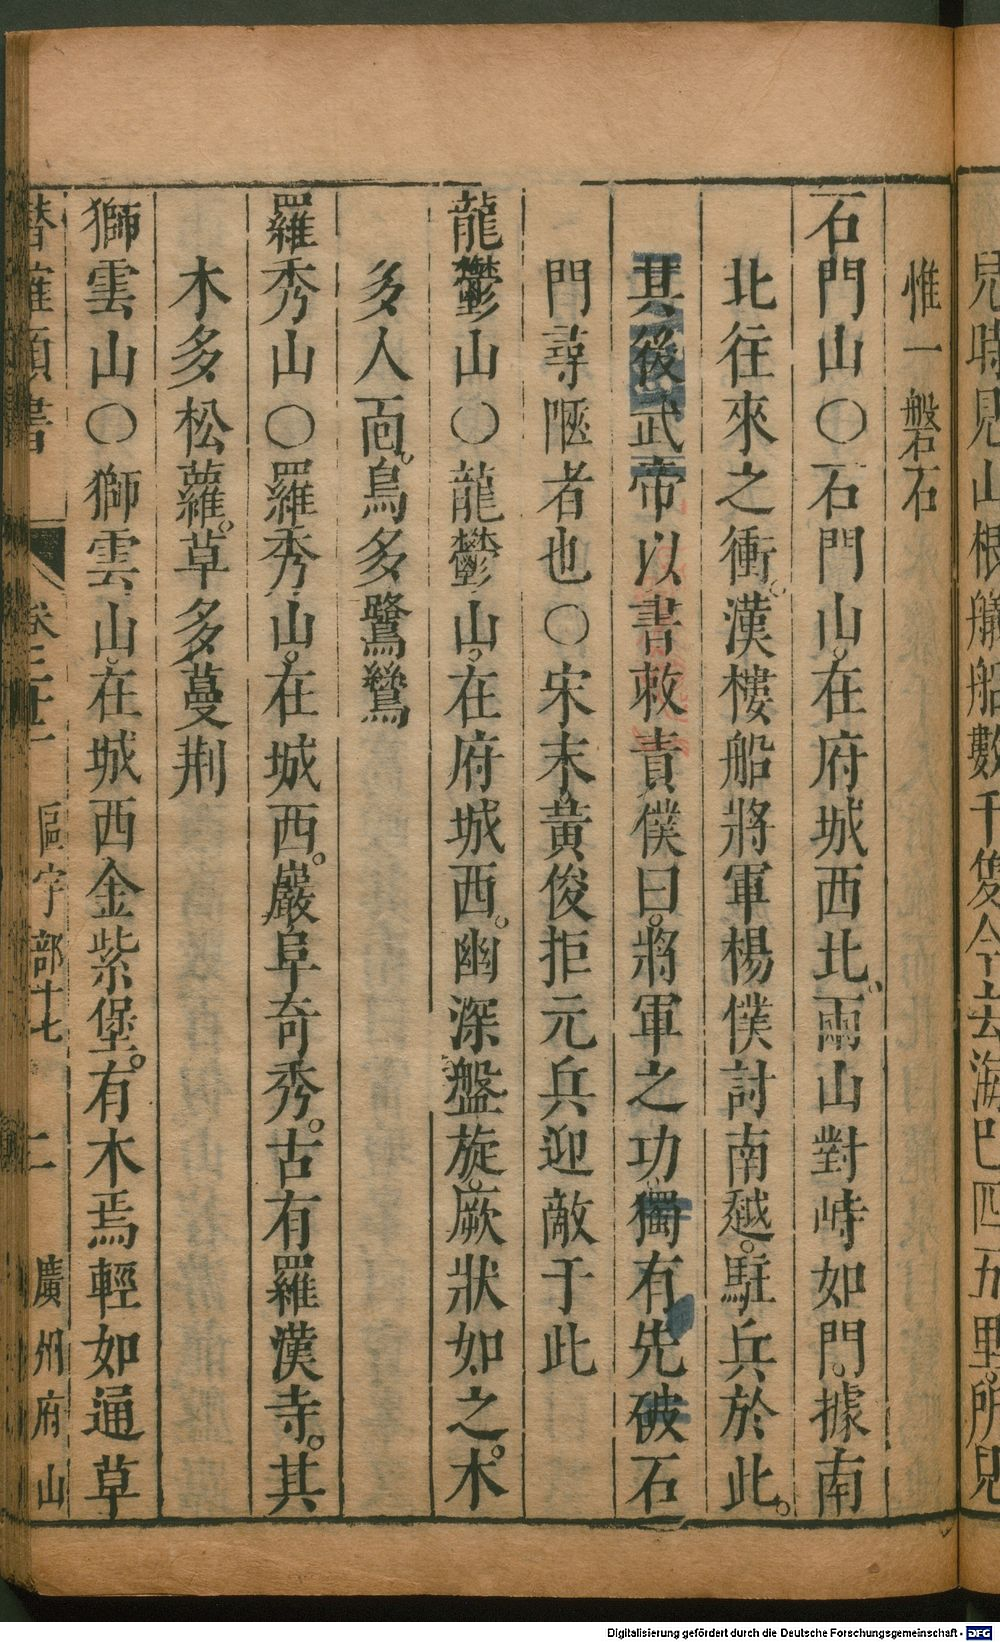 兒時見山根艤船數千隻今去海巴四五里所見
惟一磐石
石門山○石門山在府城西北兩山對峙如門據南
北往來之衝漢樓船將軍楊僕討南越駐兵於此
其後武帝以書敕責僕曰將軍之功獨有先破石
門尋陿者也○宋末黃俊拒元兵迎敵于此
龍鬱山○龍鬱山在府城西幽深盤旋厥狀如之木
多人面鳥多鷺鶿
羅秀山○羅秀山在城西巖阜奇秀古有羅漢寺其
木多松蘿草多蔓荆
獅雲山○獅雲山在城西金紫堡有木焉輕如通草
潛確類書 卷三十一 區宇部十七 二 廣州府山
Digitalisierung gefördert durch die Deutsche Forschungsgemeinschaft - DFG